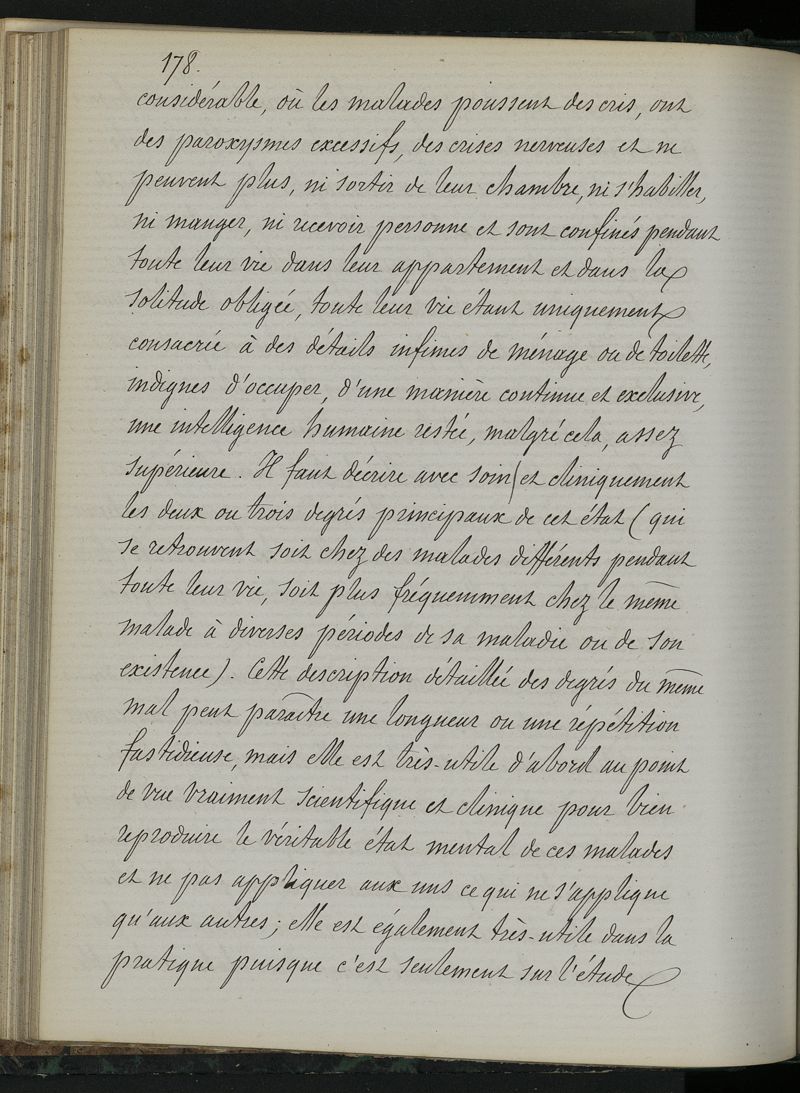 178.
considérable, où les malades poussent des cris, ont
des paroxysmes excessifs, des crises nerveuses et ne
peuvent plus, ni sortir de leur chambre, ni s'habiller,
ni manger, ni recevoir personne et sont confinés pendant
toute leur vie dans leur appartement et dans la
solitude obligée, toute leur vie étant uniquement
consacrée à des détails infimes de ménage ou de toilette,
indignes d'occuper, d'une manière continue et exclusive,
une intelligence humaine restée, malgré cela, assez
supérieure. Il faut décrire avec soin (et cliniquement
les deux ou trois degrés principaux de cet état (qui
se retrouvent soit chez des malades différents pendant
toute leur vie, soit plus fréquemment chez le même
malade à diverses périodes de sa maladie ou de son
existence). Cette description détaillée des degrés du même
mal peut paraître une longueur ou une répétition
fastidieuse, mais elle est très-utile d'abord au point
de vue vraiment scientifique et clinique pour bien
reproduire le véritable état mental de ces malades
et ne pas appliquer aux uns ce qui ne s'applique
qu'aux autres ; elle est également très-utile dans la
pratique puisque c'est seulement sur l'étude